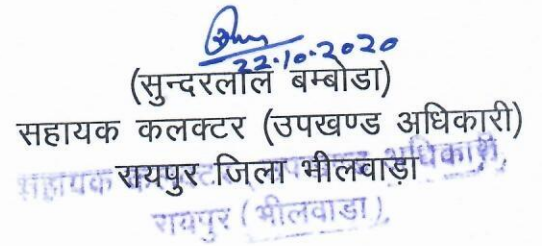 22.10.2020
(सुन्दरलाल बम्बोडा)
सहायक कलक्टर (उपखण्ड अधिकारी)
रायपुर जिला भीलवाड़ा
सहायक कलक्टर उपखण्ड अधिकारी,
रायपुर (भीलवाडा),